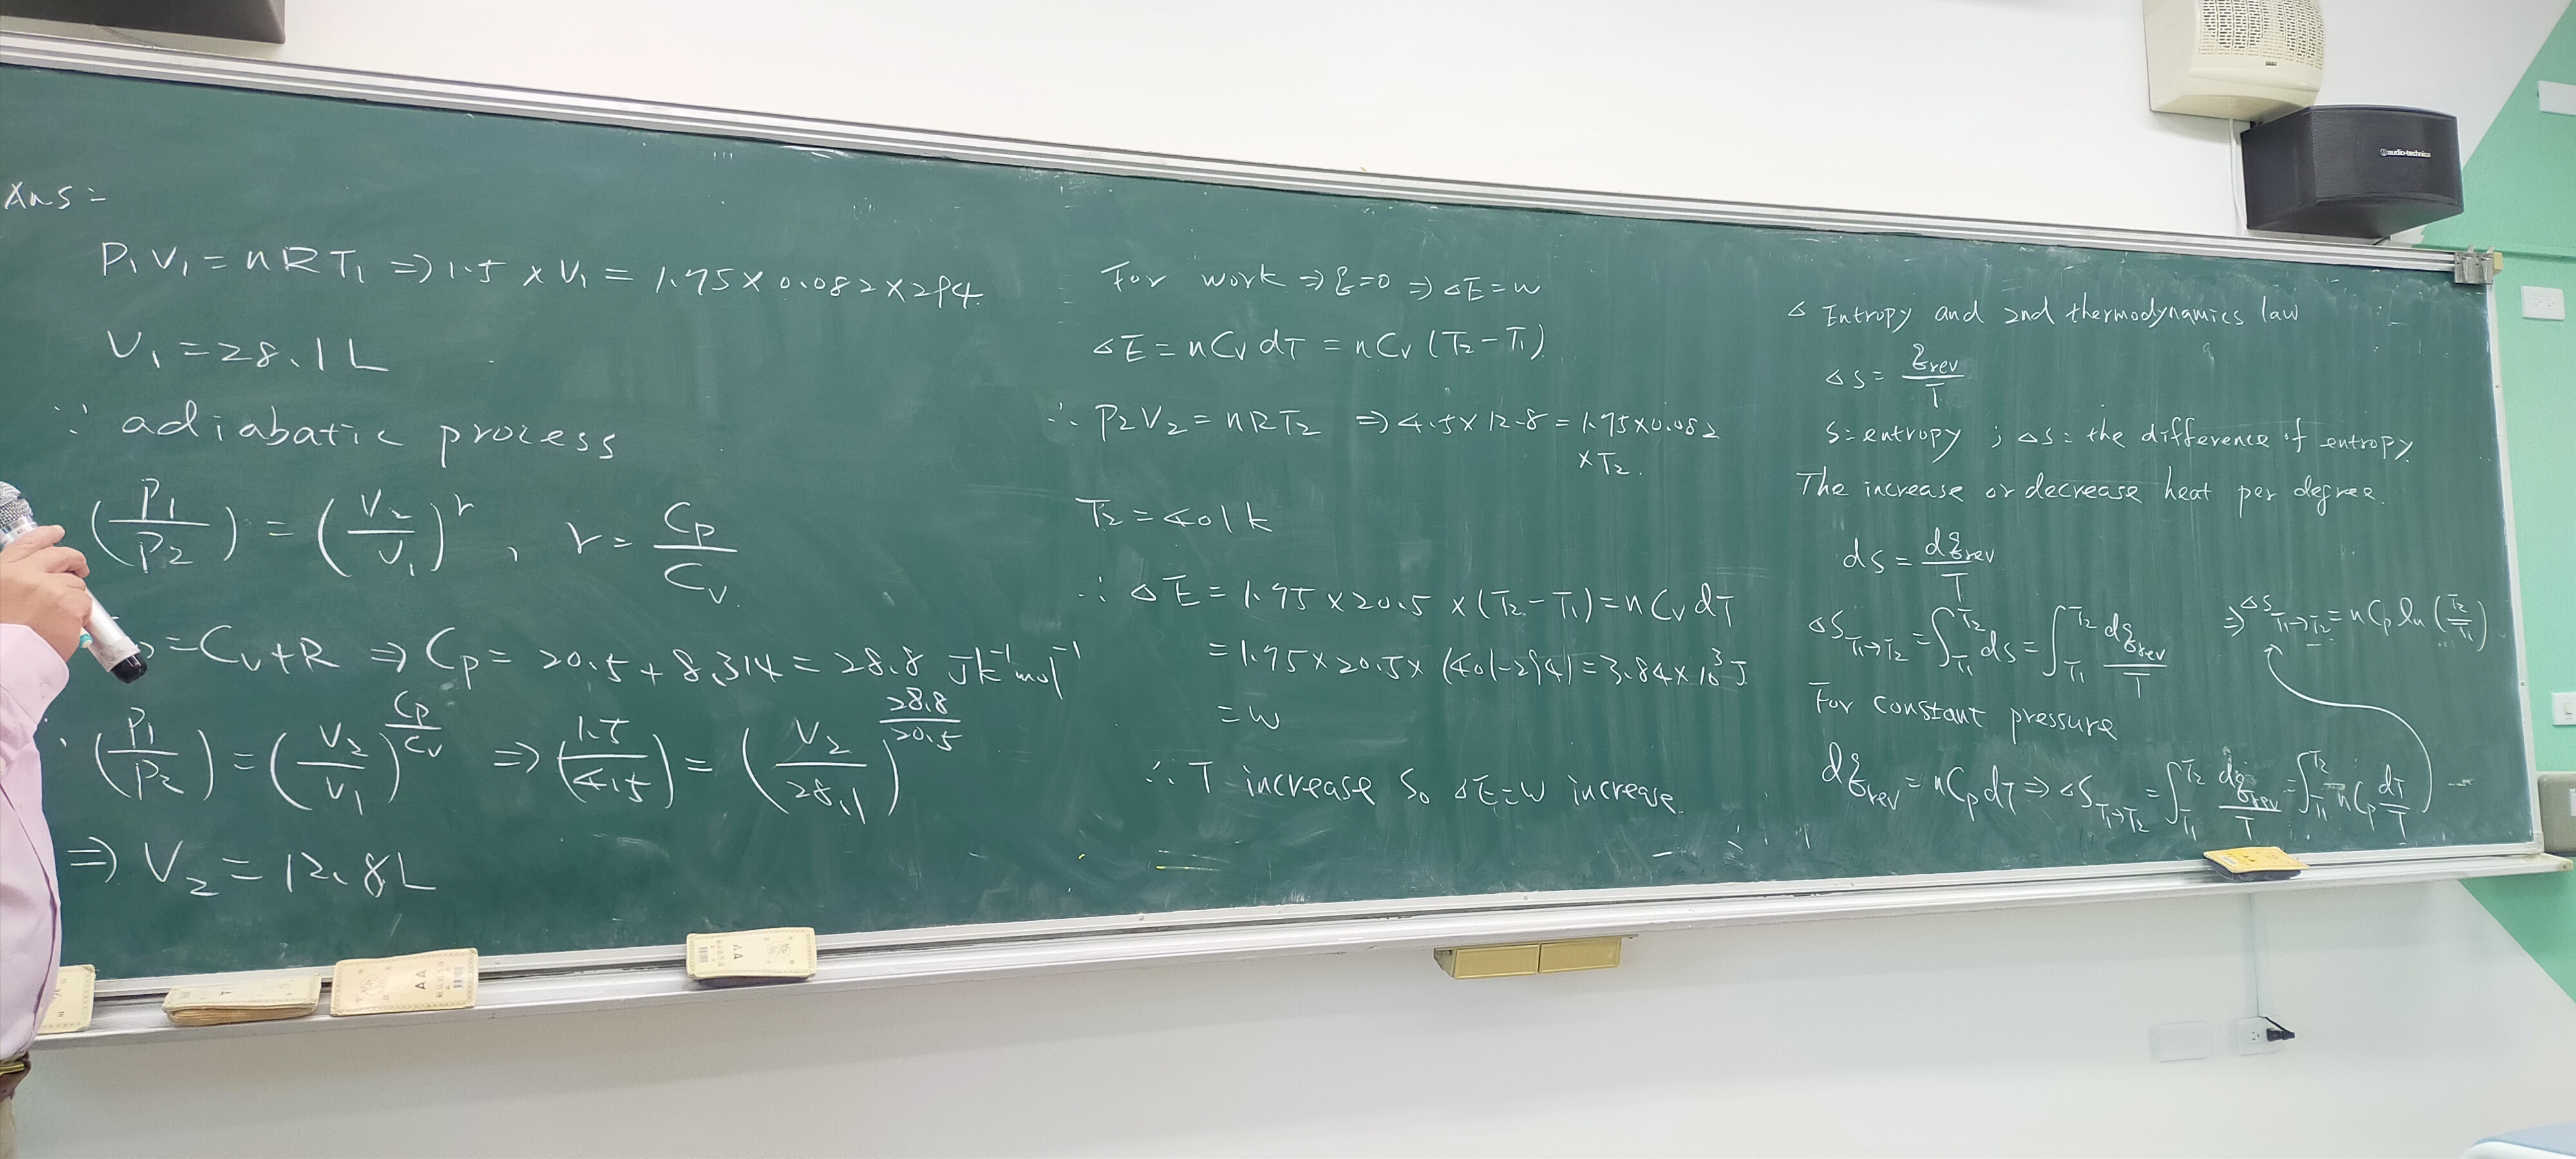 Ans=
P₁V₁ = nRT₁ ⇒ 1.5 × V₁ = 1.75 × 0.082 × 294
V₁ = 28.1 L
∵ adiabatic process
(P₁/P₂) = (V₂/V₁)^r , r = Cp/Cv
= Cv+R ⇒ Cp = 20.5 + 8.314 = 28.8 Jk⁻¹mol⁻¹
(P₁/P₂) = (V₂/V₁)^(Cp/Cv) ⇒ (1.5/4.5) = (V₂/28.1)^(28.8/20.5)
⇒ V₂ = 12.8 L
For work ⇒ q=0 ⇒ △E = w
△E = nCv dT = nCv (T₂-T₁)
∴ P₂V₂ = nRT₂ ⇒ 4.5 × 12.8 = 1.75 × 0.082
× T₂
T₂ = 401 k
∴ △E = 1.75 × 20.5 × (T₂-T₁) = nCv dT
= 1.75 × 20.5 × (401-294) = 3.84 × 10³ J
= w
∴ T increase So △E=w increase
△ Entropy and 2nd thermodynamics law
△S = qrev/T
S = entropy ; △S = the difference of entropy
The increase or decrease heat per degree.
dS = dqrev/T
△S T₁→T₂ = ∫T₁^T₂ dS = ∫T₁^T₂ dqrev/T ⇒ △S T₁→T₂ = nCp ln (T₂/T₁)
For constant pressure
dqrev = nCpdT ⇒ △S T₁→T₂ = ∫T₁^T₂ dqrev/T = ∫T₁^T₂ nCp dT/T
audio-technica